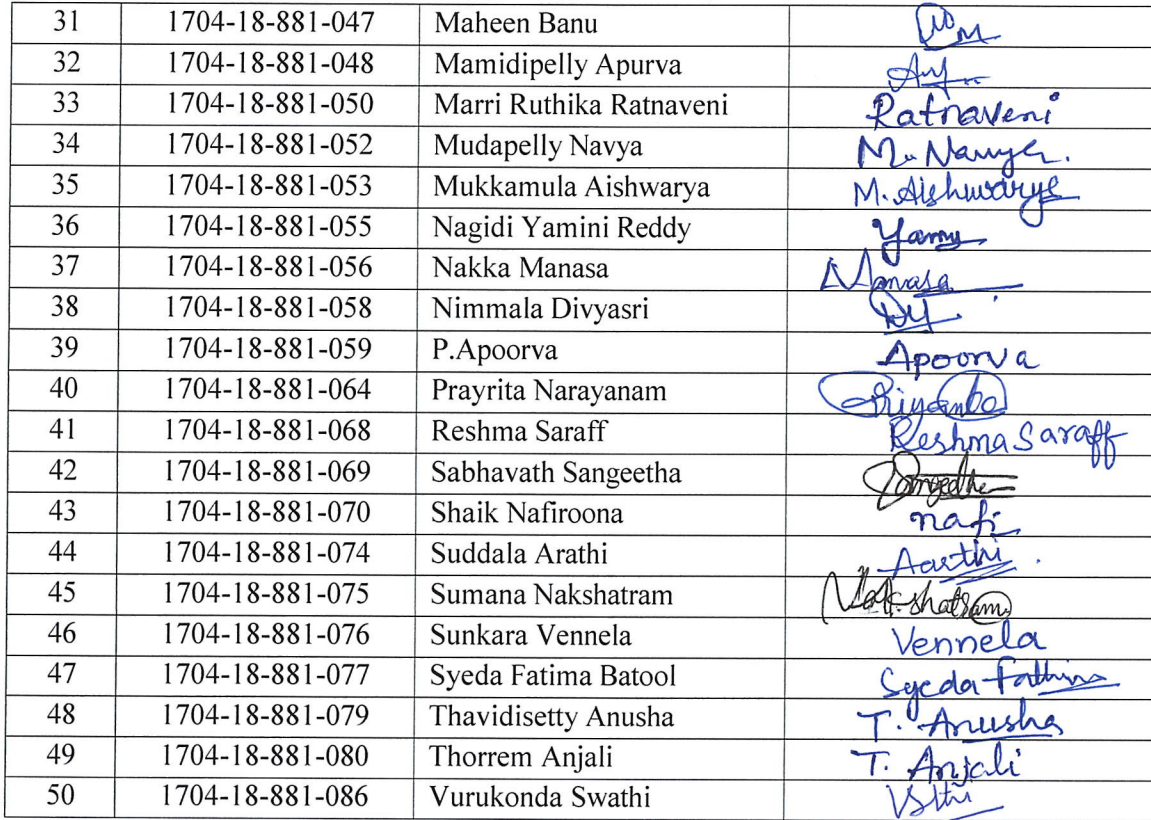 31 1704-18-881-047 Maheen Banu
32 1704-18-881-048 Mamidipelly Apurva
33 1704-18-881-050 Marri Ruthika Ratnaveni Ratnaveni
34 1704-18-881-052 Mudapelly Navya M. Navya.
35 1704-18-881-053 Mukkamula Aishwarya M. Aishwarya
36 1704-18-881-055 Nagidi Yamini Reddy
37 1704-18-881-056 Nakka Manasa Manasa
38 1704-18-881-058 Nimmala Divyasri
39 1704-18-881-059 P.Apoorva Apoorva
40 1704-18-881-064 Prayrita Narayanam
41 1704-18-881-068 Reshma Saraff Reshma Saraff
42 1704-18-881-069 Sabhavath Sangeetha
43 1704-18-881-070 Shaik Nafiroona nafi
44 1704-18-881-074 Suddala Arathi
45 1704-18-881-075 Sumana Nakshatram Nakshatram
46 1704-18-881-076 Sunkara Vennela Vennela
47 1704-18-881-077 Syeda Fatima Batool Syeda Fathima
48 1704-18-881-079 Thavidisetty Anusha T. Anusha
49 1704-18-881-080 Thorrem Anjali T. Anjali
50 1704-18-881-086 Vurukonda Swathi